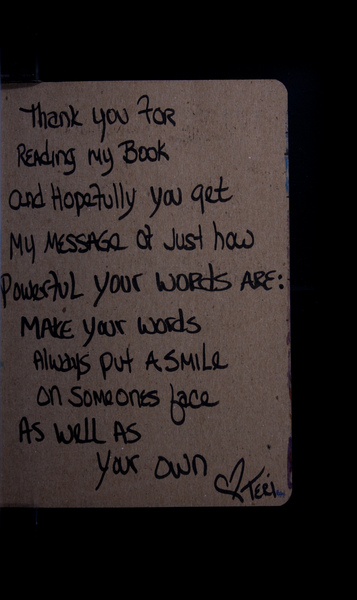 Thank you FOR
READing my Book
and Hopefully you get
My MESSAGE of Just how
Powerful your WORDS ARE:
MAKE your words
Always put A SMILE
on someones face
AS WELL AS
your own
♡ Teri